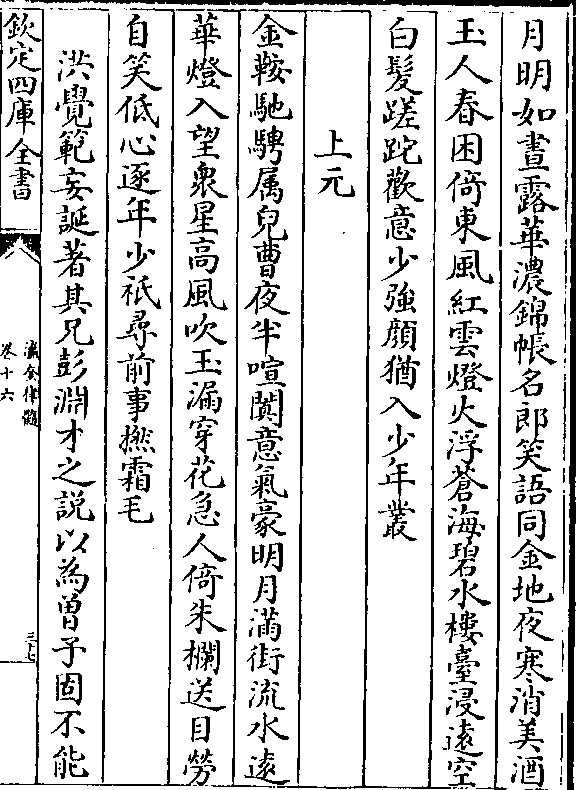 月明如晝露華濃錦帳名郎笑語同金地夜寒消美酒
玉人春困倚東風紅雲燈火浮蒼海碧水樓臺浸遠空
白髮蹉跎歡意少強顔猶入少年叢
上元
金鞍馳騁属兒曹夜半喧闐意氣豪明月滿街流水遠
華燈入望衆星高風吹玉漏穿花急人倚朱欄送目勞
自笑低心逐年少祇尋前事撚霜毛
洪覺範妄誕著其兄彭淵才之説以為曾子固不能
欽定四庫全書
瀛奎律髓
卷十六
三十七